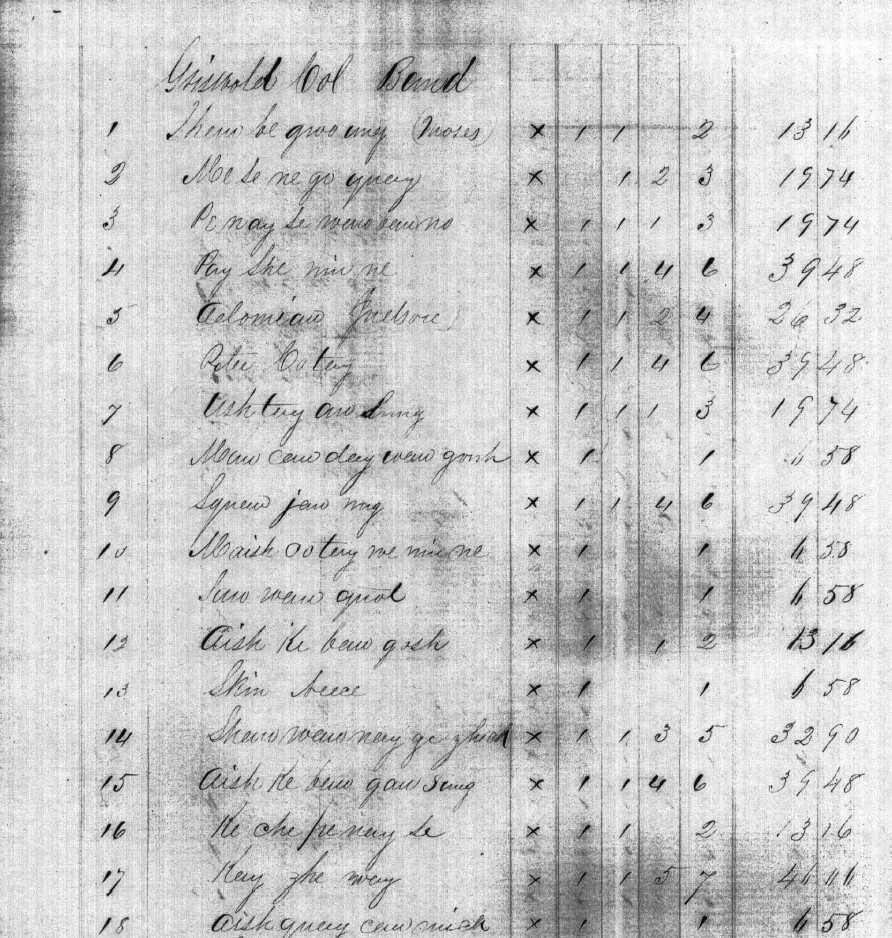 Griswold Col Band
1 Shaw be gwo ung (Moses) x 1 1 2 13 16
2 Me se ne go quay x 1 2 3 19 74
3 Pe nay se waw baw no x 1 1 1 3 19 74
4 Pay she nin ne x 1 1 4 6 39 48
5 x 1 1 2 4 26 32
6 Peter x 1 1 4 6 39 48
7 Ash tay aw sung x 1 1 1 3 19 74
8 Maw caw day waw gosh x 1 1 6 58
9 Squaw jaw nug x 1 1 4 6 39 48
10 Maish co tay we nin ne x 1 1 6 58
11 waw quot x 1 1 6 58
12 Aish ke baw gosh x 1 1 2 13 16
13 Skin x 1 1 6 58
14 Shaw waw nay ge zhick x 1 1 3 5 32 90
15 Aish ke baw gaw sung x 1 1 4 6 39 48
16 Ke che pe nay se x 1 1 2 13 16
17 Kay zhe way x 1 1 5 7 46 06
18 Aish quay caw mick x 1 1 6 58